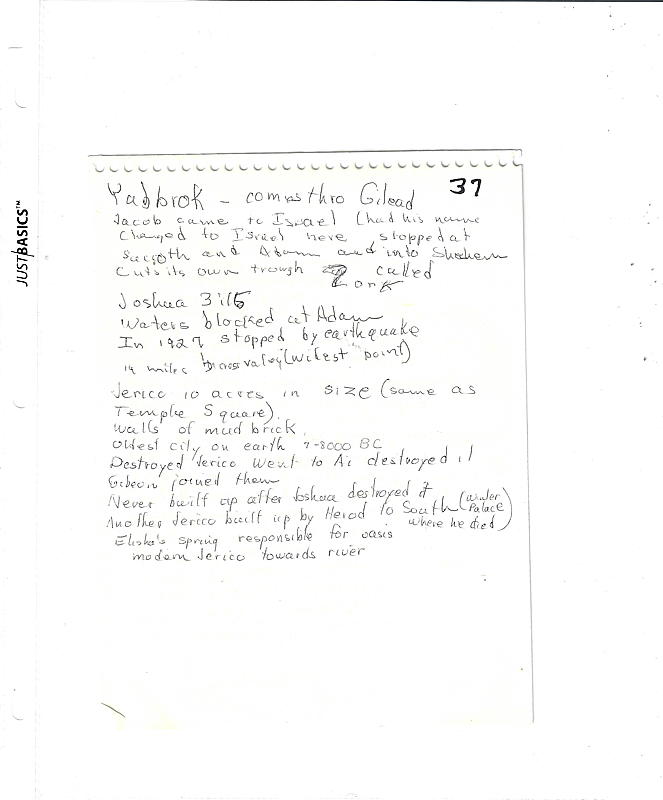 JUST BASICS™
37
Yadbrok - comes thro Gilead
Jacob came to Israel (had his name
changed to Israel here, stopped at
Succoth and Adam and into Shechem
Cuts its own trough called
Zork
Joshua 3:16
Waters blocked at Adam
In 1927 stopped by earthquake
14 miles across valley (widest point)
Jerico 10 acres in size (same as
Temple Square).
Walls of mud brick.
Oldest city on earth 7-8000 BC
Destroyed Jerico went to Ai destroyed it
Gibeon joined them
Never built up after Joshua destroyed it
Another Jerico built up by Herod to South (Winter Palace where he died)
Elisha's spring responsible for oasis
modern Jerico towards river